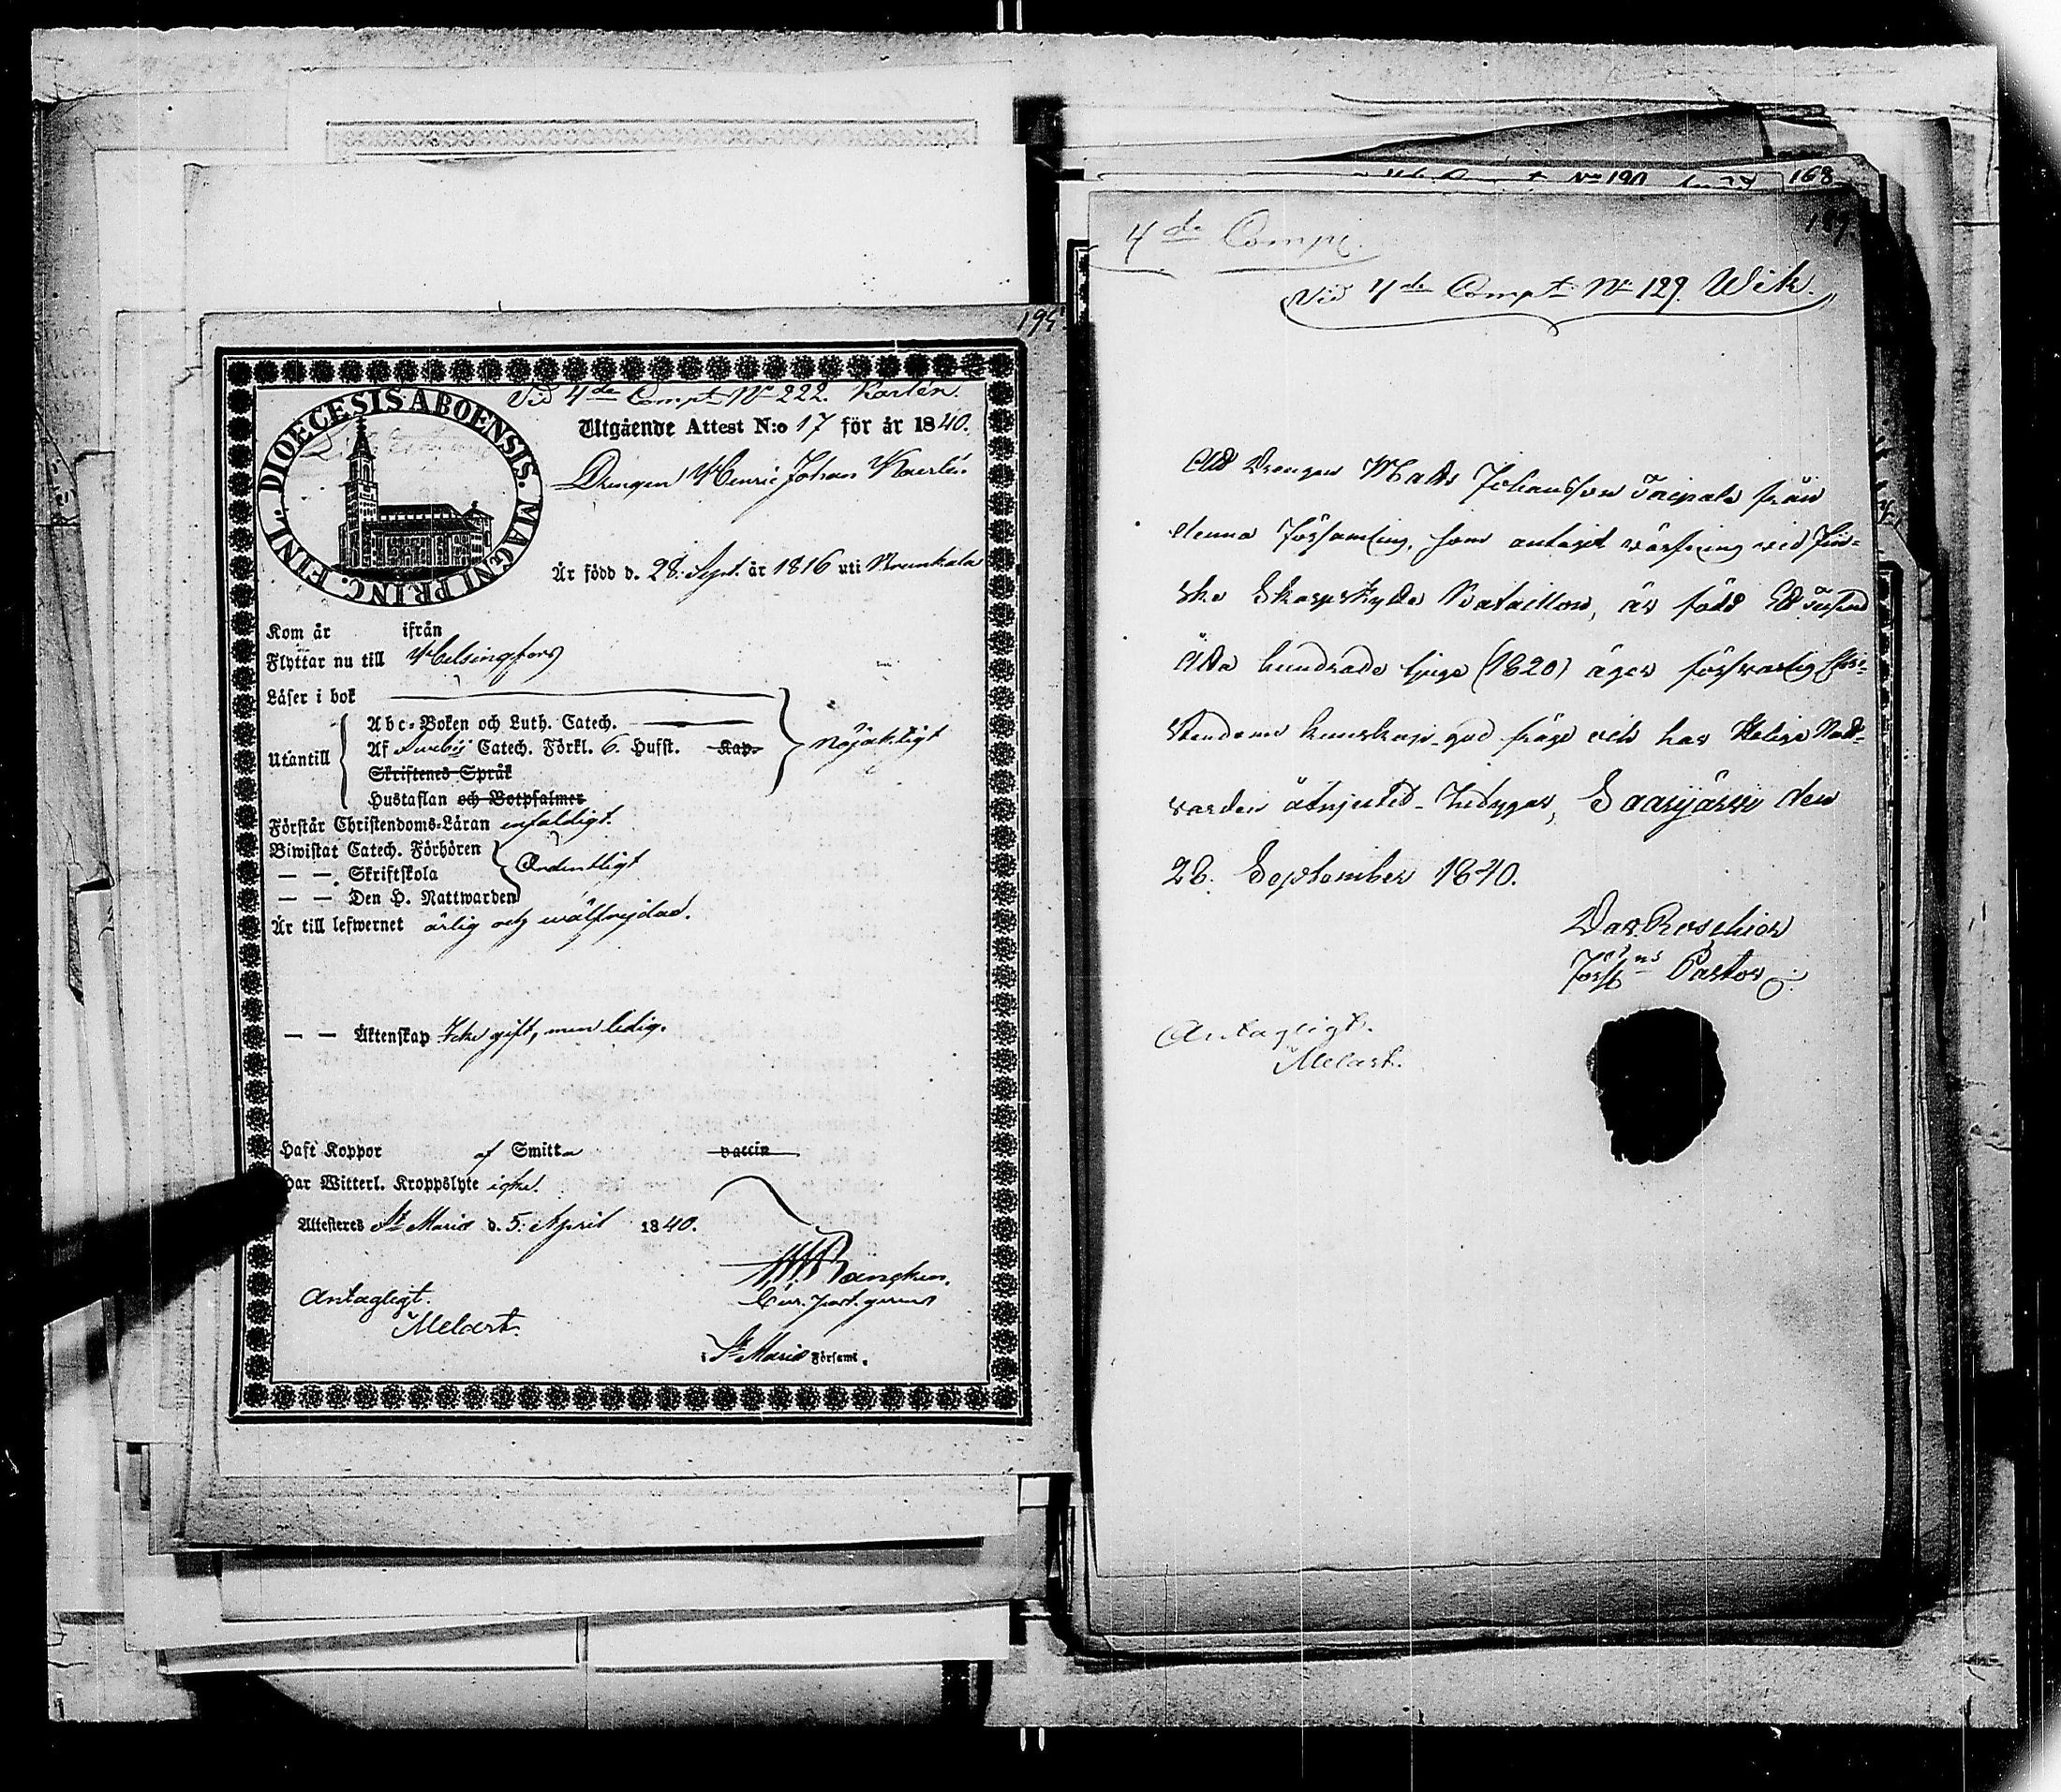 195
Vid 4de Compt No 222. Karlén.
DIOECESIS ABOENSIS. MAGNI PRINC. FINL.
Utgående Attest N:o 17 för år 1840.
Drengen Henric Johan Kaerlén
Är född d. 28. Sept. år 1816 uti Brunkala
Kom år ifrån
Flyttar nu till Helsingfors
Läser i bok
Abc-Boken och Luth. Catech.
Utantill Af Svebii Catech. Förkl. 6. Hufst. Kap. nöjaktigt
Skriftenes Språk
Hustaflan och Botpsalmer
Förstår Christendoms-Läran enfaldigt.
Biwistat Catech. Förhören
— — Skriftskola Ordentligt
— — Den H. Nattwarden
Är till lefwernet ärlig och wälfrejdad.
— — Äktenskap Icke gift, men ledig.
Haft Koppor af Smitta vaccin
Har Witterl. Kroppslyte icke.
Attesteres St Marie d. 5. April 1840.
Bangken.
Antagligt.
Melart.
i St Marie Församl.
168
No 190
4de Comp.
Vid 4de Compt No 129. Wik.
Att Drengen Matts Johansson Taipale från
denna Församling, som antagit värfning vid Fin-
ska Skarpskytte Bataillon, är född Ett Tusend
Åtta hundrade tjugo (1820) äger försvarlig Chri-
stendoms kunskap, god frägd och har Heliga Natt-
varden åtnjutit, betygar, Saarijärvi den
28. September 1840.
Dav. Roschier
Förss:ns Pastor
Antagligt.
Melart.